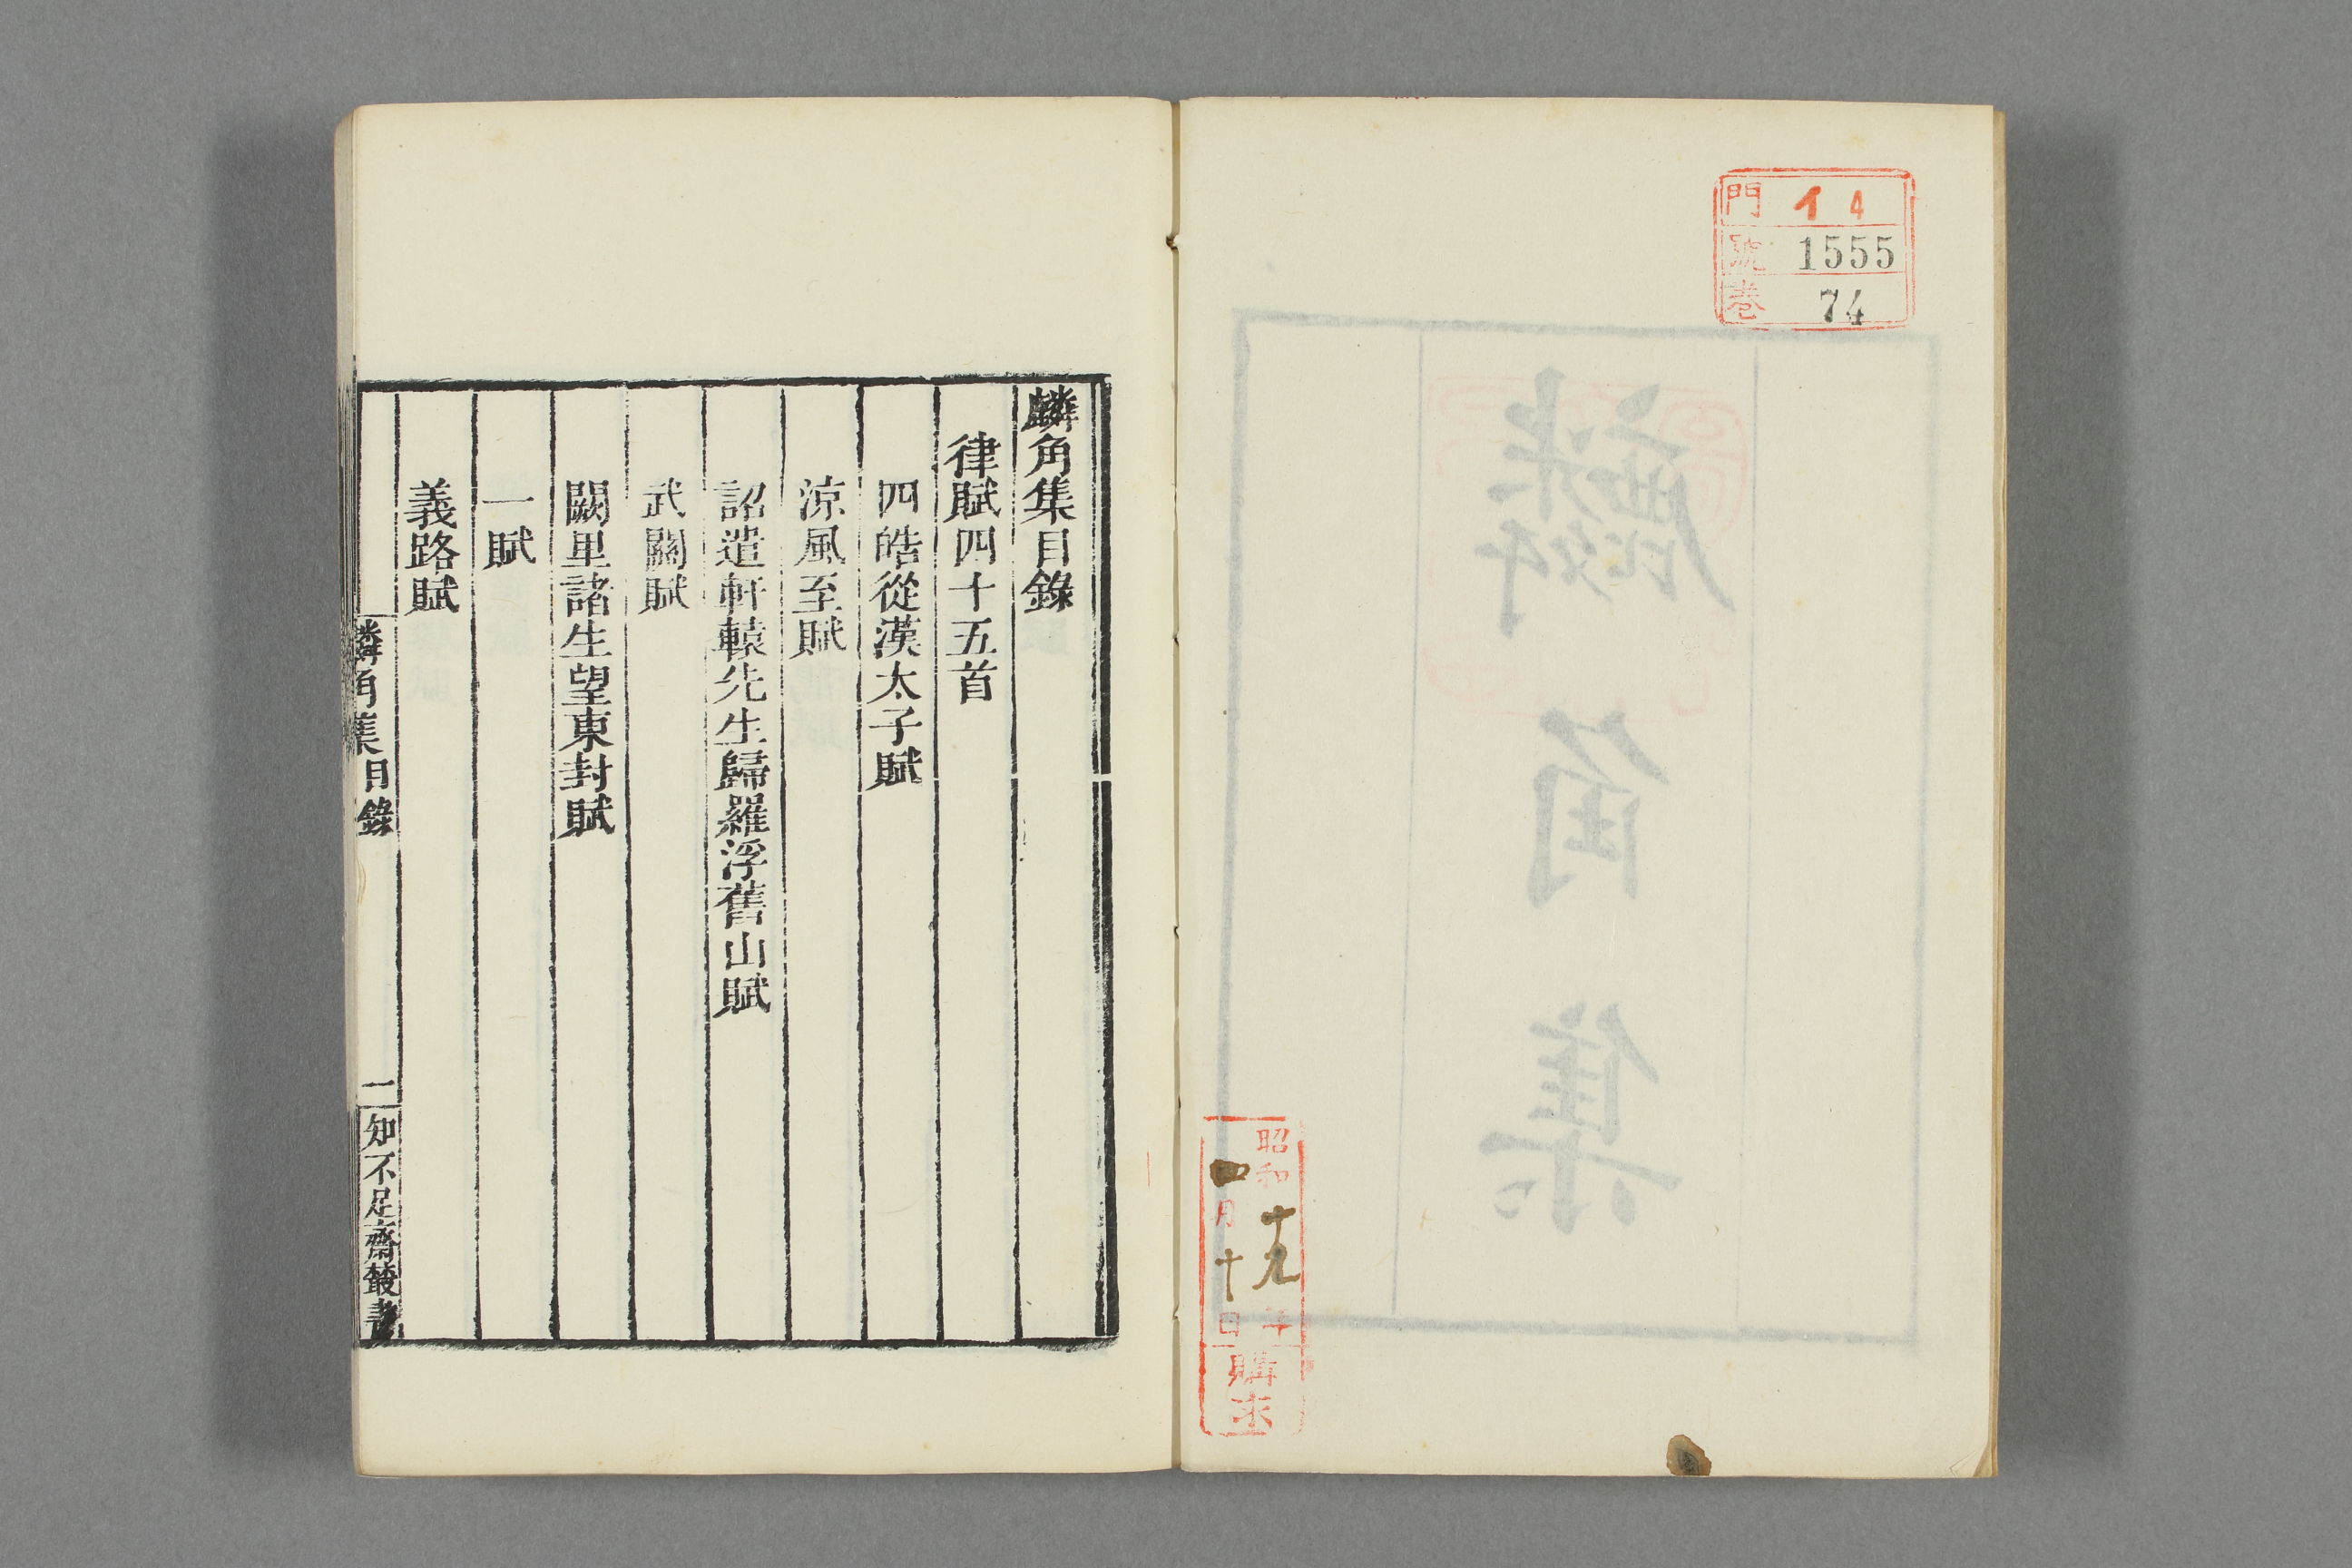 門 イ 4
號 1555
卷 74
昭和十九年
四月十日
購求
麟角集
麟角集目錄
律賦四十五首
四皓從漢太子賦
涼風至賦
詔遣軒轅先生歸羅浮舊山賦
武關賦
闕里諸生望東封賦
一賦
義路賦
麟角集目錄
一
知不足齋叢書